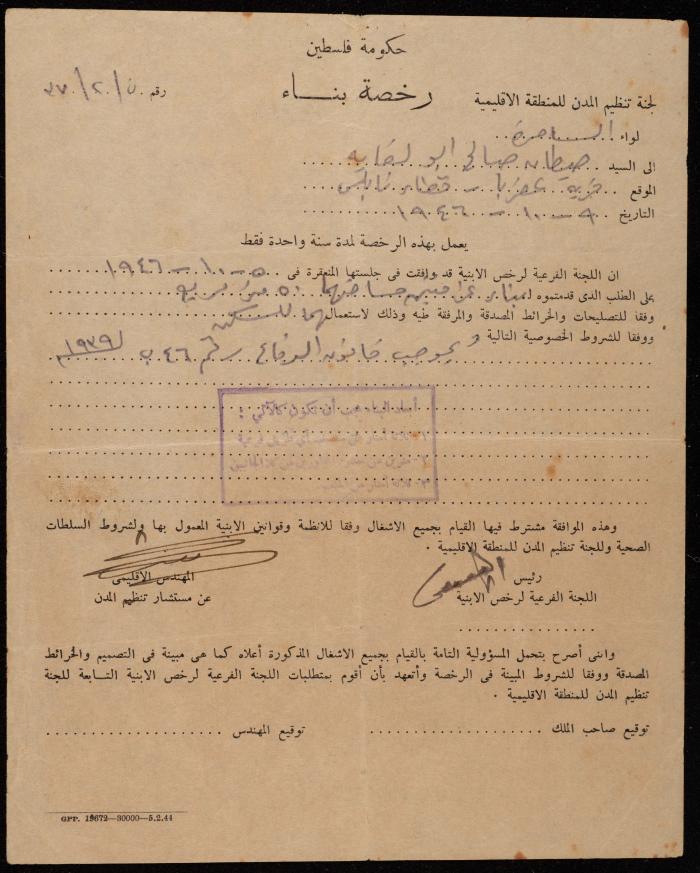 حكومة فلسطين
رقم ن/٢/٣٧
رخصة بنـــاء
لجنة تنظيم المدن للمنطقة الاقليمية
لواء السامرة
الى السيد صالح ابو
الموقع قرية عقربا - قضاء نابلس
التاريخ ٩ - ١٠ - ١٩٤٦
يعمل بهذه الرخصة لمدة سنة واحدة فقط
ان اللجنة الفرعية لرخص الابنية قد وافقت فى جلستها المنعقدة فى ٥ - ١٠ - ١٩٤٦
على الطلب الذى قدمتموه لبناء مساحتها ٥٠ متر مربع
وفقا للتصليحات والخرائط المصدقة والمرفقة طيه وذلك لاستعمالهما للسكن
ووفقا للشروط الخصوصية التالية
بموجب قانون الدفاع رقم ٤٦ ب لسنة ١٩٣٩م
أبعاد البناء يجب أن تكون كالآتي :
وهذه الموافقة مشترط فيها القيام بجميع الاشغال وفقا للانظمة وقوانين الابنية المعمول بها ولشروط السلطات
الصحية وللجنة تنظيم المدن للمنطقة الاقليمية .
رئيس
اللجنة الفرعية لرخص الابنية
المهندس الاقليمى
عن مستشار تنظيم المدن
وانى أصرح بتحمل المسؤولية التامة بالقيام بجميع الاشغال المذكورة أعلاه كما هى مبينة فى التصميم والخرائط
المصدقة ووفقا للشروط المبينة فى الرخصة وأتعهد بأن أقوم بمتطلبات اللجنة الفرعية لرخص الابنية التـابعة للجنة
تنظيم المدن للمنطقة الاقليمية .
توقيع صاحب الملك
توقيع المهندس
GPP. 19672—30000—5.2.44